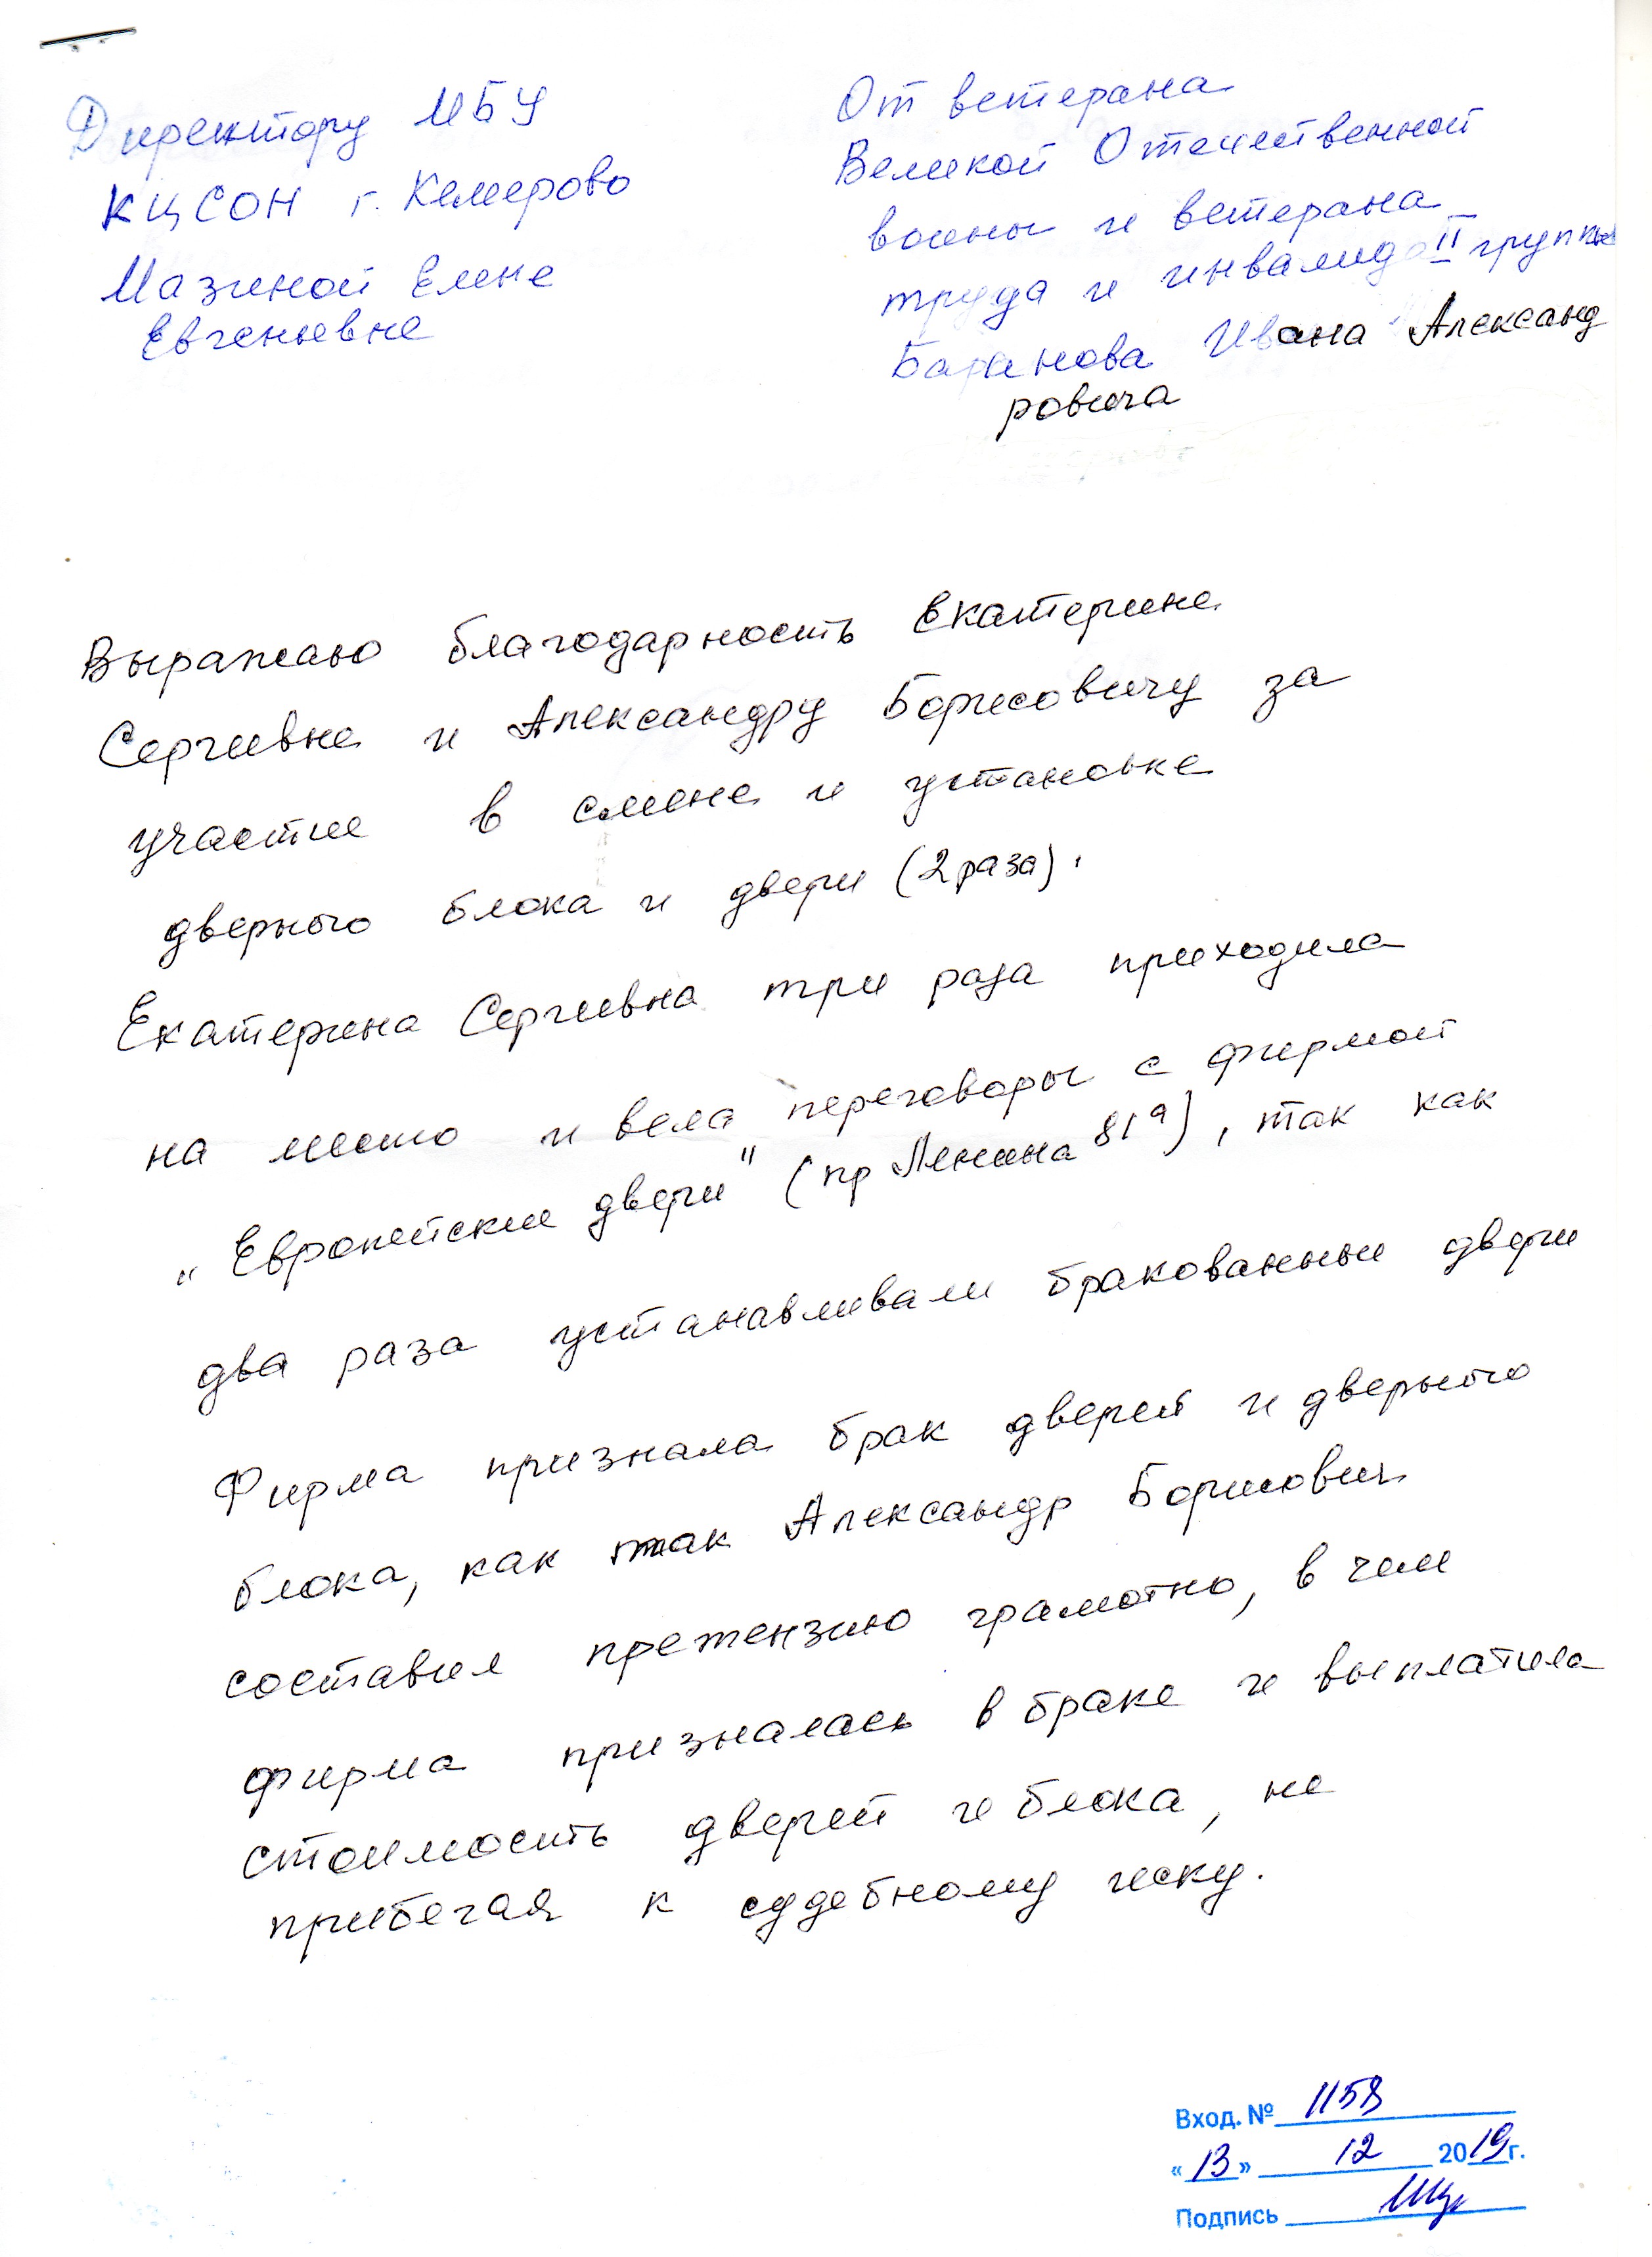 Директору МБУ
КЦСОН г. Кемерово
Мазиной Елене
Евгеньевне
От ветерана
Великой Отечественной
войны и ветерана
труда и инвалида II группы
Баранова Ивана Александ
ровича
Выражаю благодарность Екатерине
Сергеевне и Александру Борисовичу за
участие в смене и установке
дверного блока и двери (2 раза).
Екатерина Сергеевна три раза приходила
на место и вела переговоры с фирмой
"Европейские двери" (пр Ленина 81а), так как
два раза устанавливали бракованные двери
Фирма признала брак дверей и дверного
блока, как так Александр Борисович
составил претензию грамотно, в чем
фирма призналась в браке и выплатила
стоимость дверей и блока, не
прибегая к судебному иску.
Вход. № 1158
«13» 12 2019 г.
Подпись